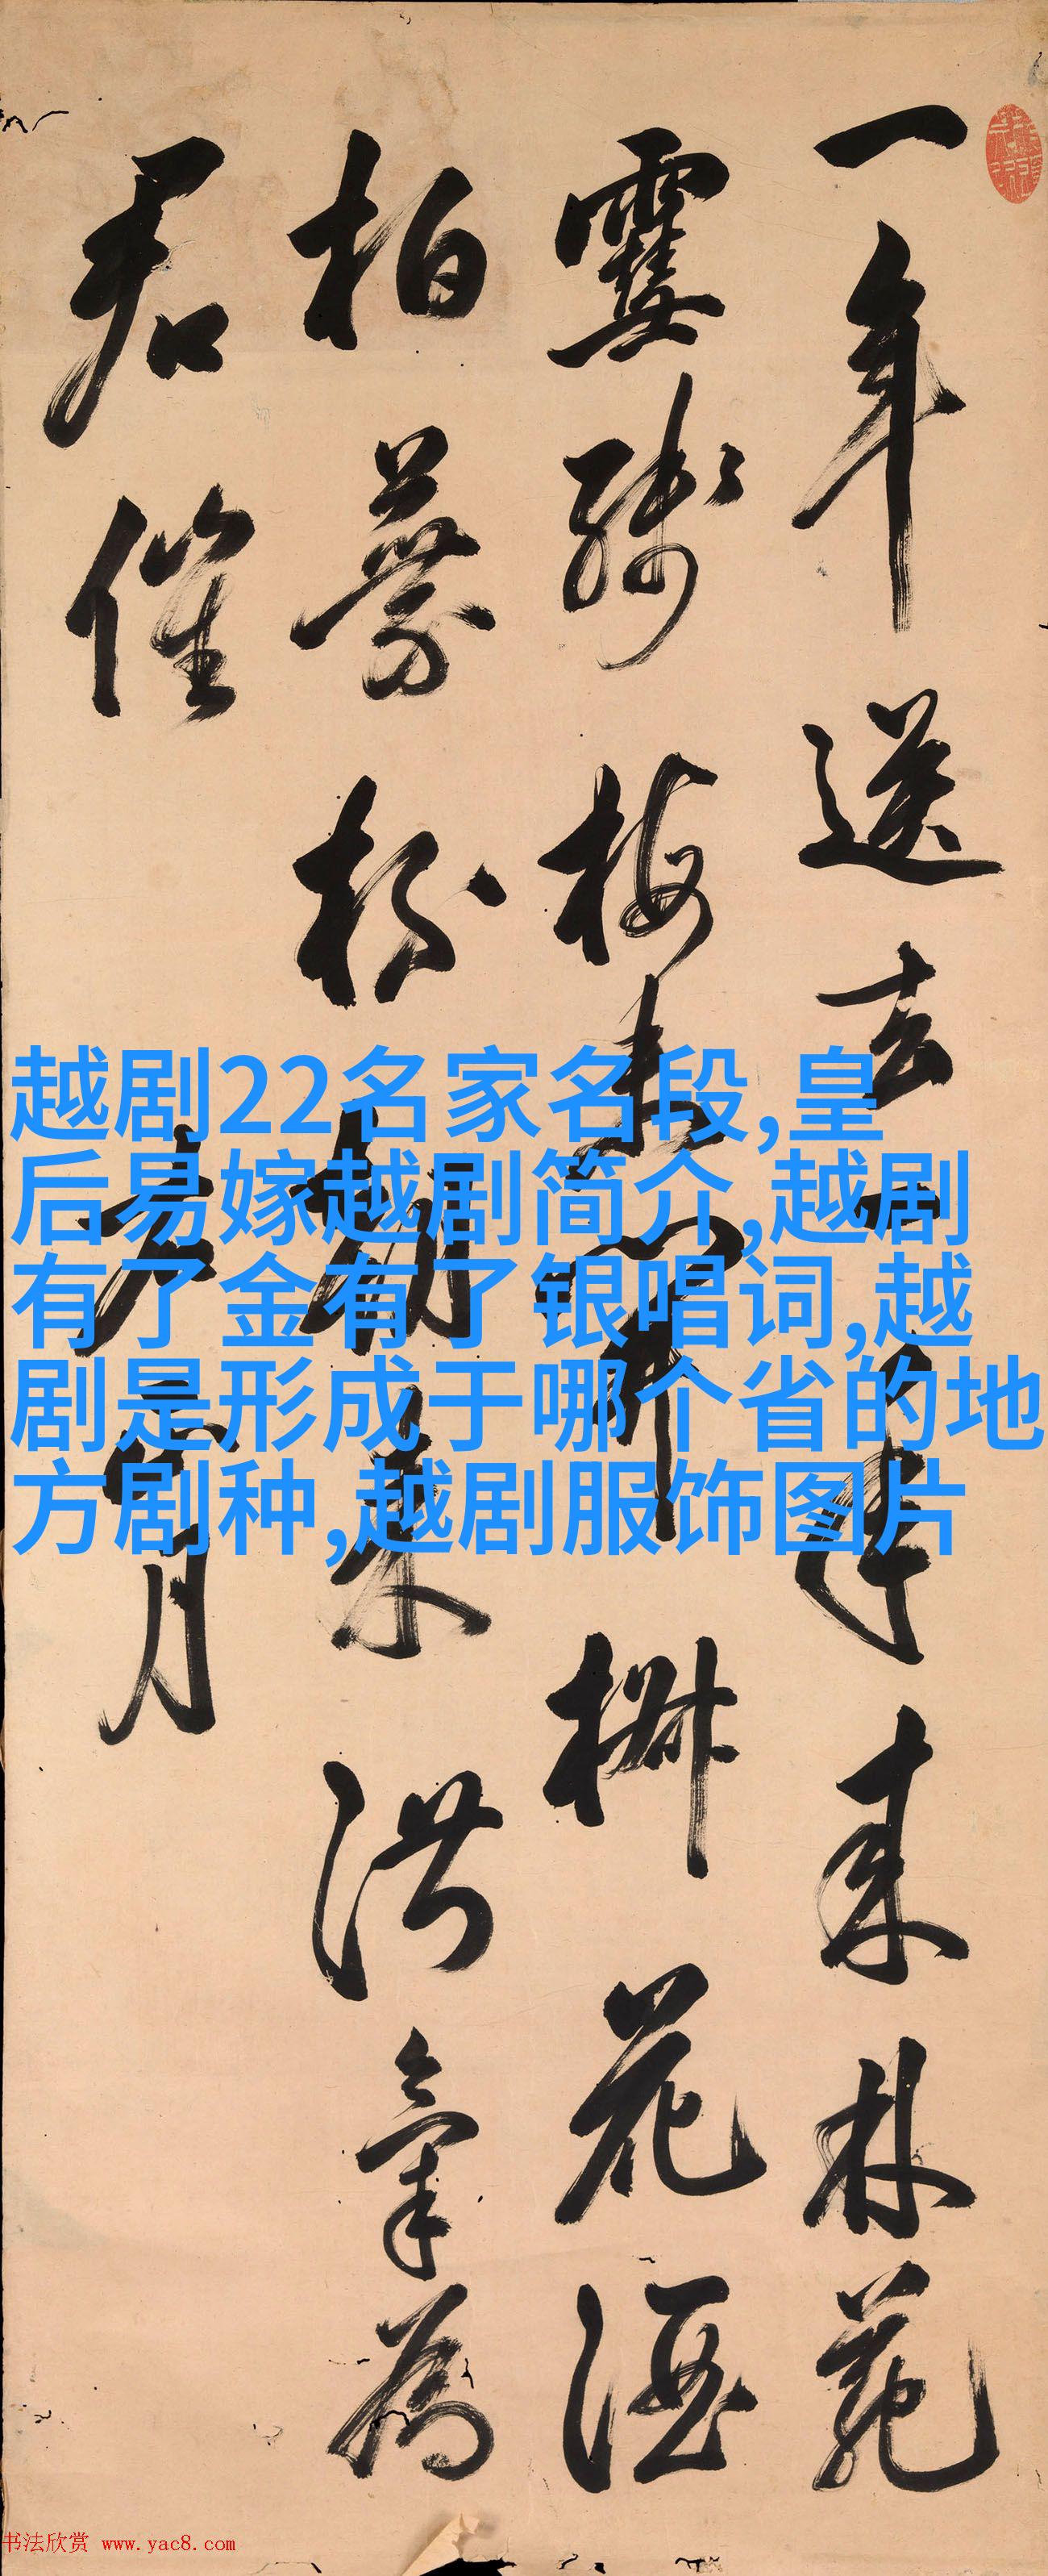 越剧22名家名段,皇
后易嫁越剧简介,越剧
有了金有了银唱词,越
剧是形成于哪个省的地
方剧种,越剧服饰图片
一年送去一年来林苑
梅未開 花酒
柏 朝来淑氣為
君催 月
书法欣赏 www.yac8.com